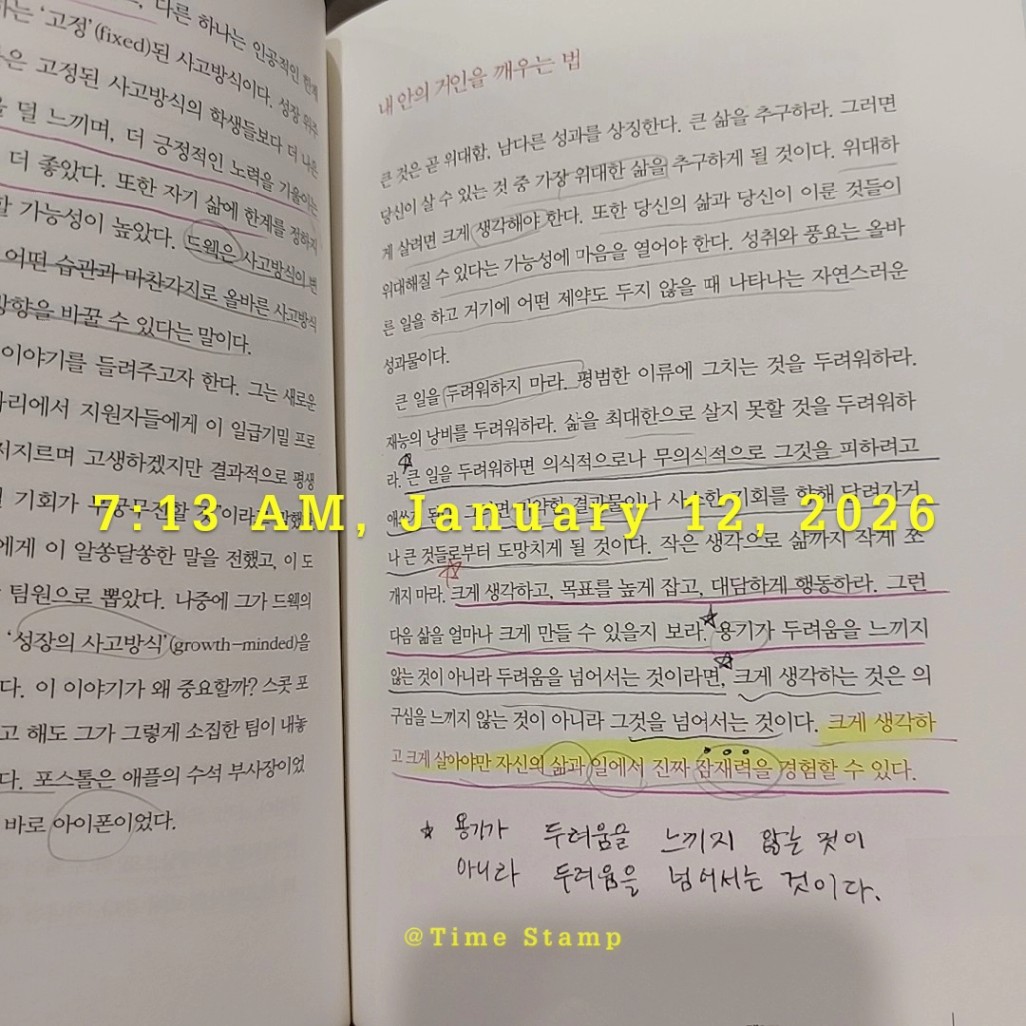 다른 하나는 인공적인 한계
는 '고정'(fixed)된 사고방식이다. 성장 위주
은 고정된 사고방식의 학생들보다 더 나은
을 덜 느끼며, 더 긍정적인 노력을 기울이는
더 좋았다. 또한 자기 삶에 한계를 정하지
할 가능성이 높았다. 드웩은 사고방식이 변
어떤 습관과 마찬가지로 올바른 사고방식
방향을 바꿀 수 있다는 말이다.
이야기를 들려주고자 한다. 그는 새로운
자리에서 지원자들에게 이 일급기밀 프로
저지르며 고생하겠지만 결과적으로 평생
기회가
에게 이 알쏭달쏭한 말을 전했고, 이 도
팀원으로 뽑았다. 나중에 그가 드웩의
'성장의 사고방식'(growth-minded)을
다. 이 이야기가 왜 중요할까? 스콧 포
고 해도 그가 그렇게 소집한 팀이 내놓
다. 포스톨은 애플의 수석 부사장이었
바로 아이폰이었다.
내 안의 거인을 깨우는 법
큰 것은 곧 위대함, 남다른 성과를 상징한다. 큰 삶을 추구하라. 그러면
당신이 살 수 있는 것 중 가장 위대한 삶을 추구하게 될 것이다. 위대하
게 살려면 크게 생각해야 한다. 또한 당신의 삶과 당신이 이룬 것들이
위대해질 수 있다는 가능성에 마음을 열어야 한다. 성취와 풍요는 올바
른 일을 하고 거기에 어떤 제약도 두지 않을 때 나타나는 자연스러운
성과물이다.
큰 일을 두려워하지 마라. 평범한 이류에 그치는 것을 두려워하라.
재능의 낭비를 두려워하라. 삶을 최대한으로 살지 못할 것을 두려워하
라. 큰 일을 두려워하면 의식적으로나 무의식적으로 그것을 피하려고
애쓰게 된다. 결과물이나 사소한 기회를 향해 달려가거
나 큰 것들로부터 도망치게 될 것이다. 작은 생각으로 삶까지 작게 쪼
개지 마라. 크게 생각하고, 목표를 높게 잡고, 대담하게 행동하라. 그런
다음 삶을 얼마나 크게 만들 수 있을지 보라. 용기가 두려움을 느끼지
않는 것이 아니라 두려움을 넘어서는 것이라면, 크게 생각하는 것은 의
구심을 느끼지 않는 것이 아니라 그것을 넘어서는 것이다. 크게 생각하
고 크게 살아야만 자신의 삶과 일에서 진짜 잠재력을 경험할 수 있다.
☆ 용기가 두려움을 느끼지 않는 것이
아니라 두려움을 넘어서는 것이다.
7:13 AM, January 12, 2026
@Time Stamp